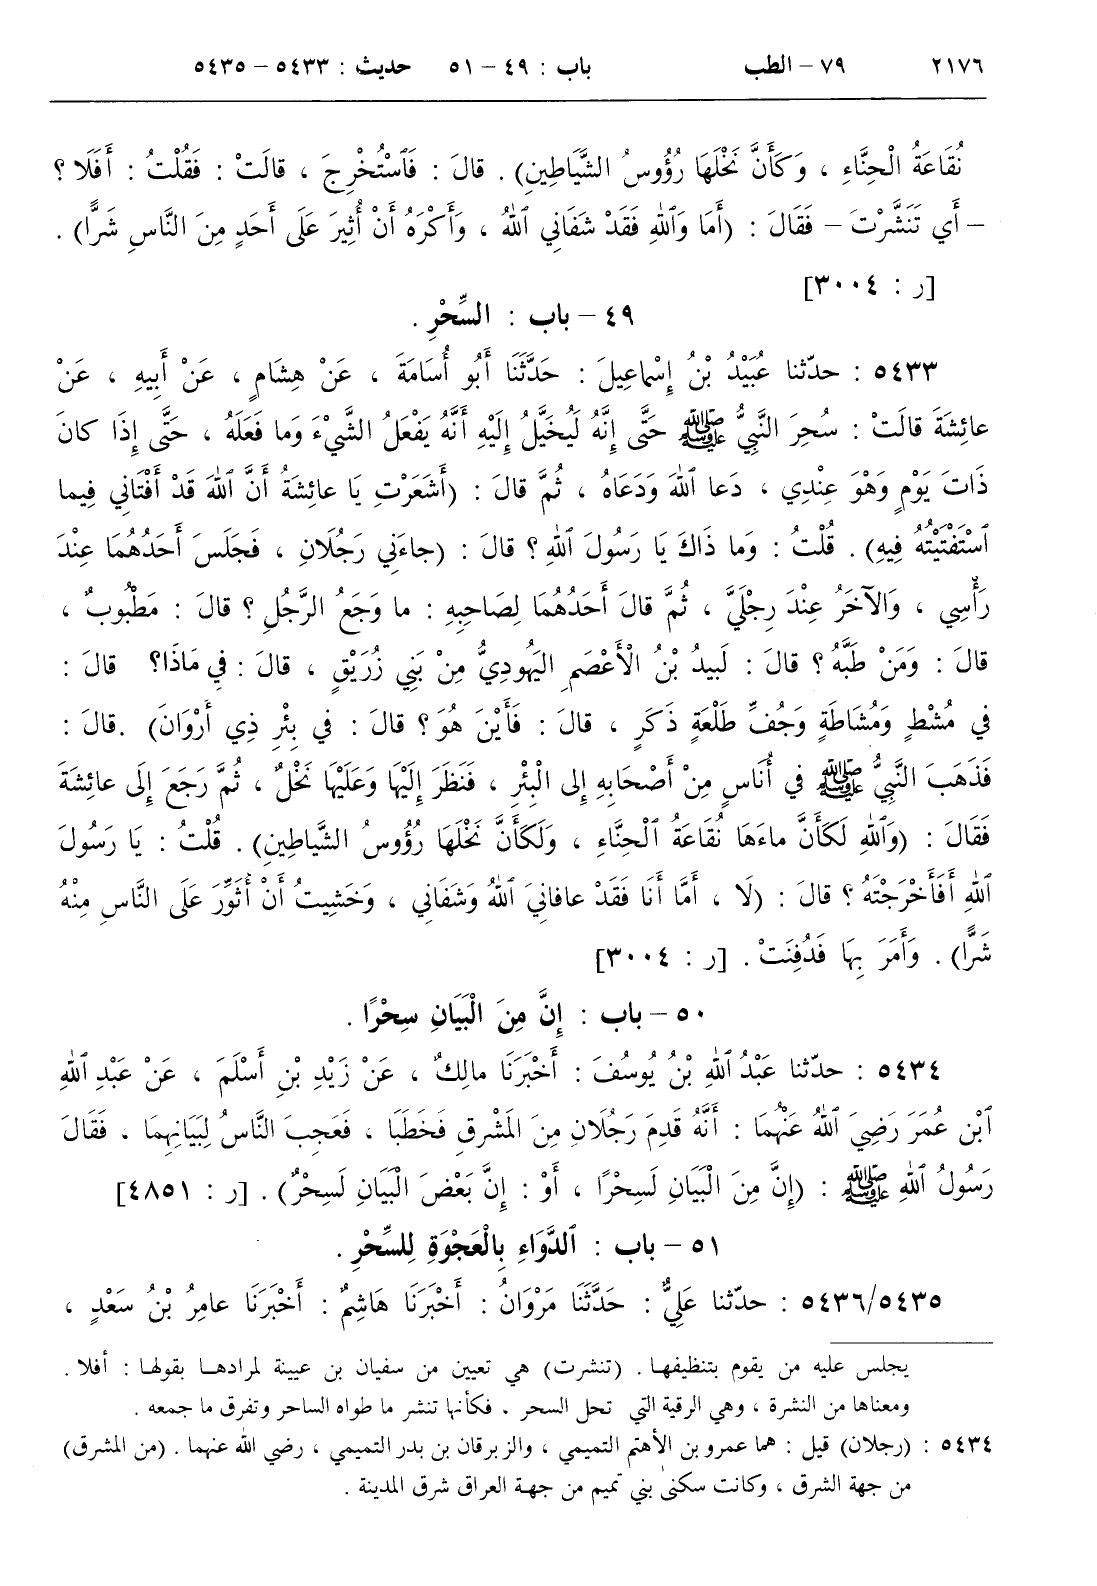 ٢١٧٦ ٧٩ – الطب باب : ٤٩ – ٥١ حديث : ٥٤٣٣ – ٥٤٣٥
نُقَاعَةُ الْحِنَّاءِ ، وَكَأَنَّ نَخْلَهَا رُؤُوسُ الشَّيَاطِينِ) . قالَ : فَٱسْتُخْرِجَ ، قالَتْ : فَقُلْتُ : أَفَلَا ؟
– أَي تَنَشَّرْتَ – فَقَالَ : (أَمَا وَٱللهِ فَقَدْ شَفَانِي ٱللهُ ، وَأَكْرَهُ أَنْ أُثِيرَ عَلَى أَحَدٍ مِنَ النَّاسِ شَرًّا) .
[ر : ٣٠٠٤]
٤٩ – باب : السِّحْرِ .
٥٤٣٣ : حدّثنا عُبَيْدُ بْنُ إِسْماعِيلَ : حَدَّثَنَا أَبُو أُسَامَةَ ، عَنْ هِشَامٍ ، عَنْ أَبِيهِ ، عَنْ
عائِشَةَ قالَتْ : سُحِرَ النَّبِيُّ ﷺ حَتَّى إِنَّهُ لَيُخَيَّلُ إِلَيْهِ أَنَّهُ يَفْعَلُ الشَّيْءَ وَما فَعَلَهُ ، حَتَّى إِذَا كانَ
ذَاتَ يَوْمٍ وَهْوَ عِنْدِي ، دَعا ٱللهَ وَدَعَاهُ ، ثُمَّ قالَ : (أَشَعَرْتِ يَا عائِشَةُ أَنَّ ٱللهَ قَدْ أَفْتَانِي فِيما
ٱسْتَفْتَيْتُهُ فِيهِ) . قُلْتُ : وَما ذَاكَ يَا رَسُولَ ٱللهِ ؟ قالَ : (جاءَنِي رَجُلَانِ ، فَجَلَسَ أَحَدُهُمَا عِنْدَ
رَأْسِي ، وَالآخَرُ عِنْدَ رِجْلَيَّ ، ثُمَّ قالَ أَحَدُهُمَا لِصَاحِبِهِ : ما وَجَعُ الرَّجُلِ ؟ قالَ : مَطْبُوبٌ ،
قالَ : وَمَنْ طَبَّهُ ؟ قالَ : لَبِيدُ بْنُ الْأَعْصَمِ الْيَهُودِيُّ مِنْ بَنِي زُرَيْقٍ ، قالَ : فِي مَاذَا؟ قالَ :
فِي مُشْطٍ وَمُشَاطَةٍ وَجُفِّ طَلْعَةٍ ذَكَرٍ ، قالَ : فَأَيْنَ هُوَ ؟ قالَ : فِي بِئْرِ ذِي أَرْوَانَ) .قالَ :
فَذَهَبَ النَّبِيُّ ﷺ فِي أُنَاسٍ مِنْ أَصْحَابِهِ إِلَى الْبِئْرِ ، فَنَظَرَ إِلَيْهَا وَعَلَيْهَا نَخْلٌ ، ثُمَّ رَجَعَ إِلَى عائِشَةَ
فَقَالَ : (وَٱللهِ لَكَأَنَّ ماءَهَا نُقَاعَةُ ٱلْحِنَّاءِ ، وَلَكَأَنَّ نَخْلَهَا رُؤُوسُ الشَّيَاطِينِ) . قُلْتُ : يَا رَسُولَ
ٱللهِ أَفَأَخْرَجْتَهُ ؟ قالَ : (لَا ، أَمَّا أَنَا فَقَدْ عافانِيَ ٱللهُ وَشَفَانِي ، وَخَشِيتُ أَنْ أُثَوِّرَ عَلَى النَّاسِ مِنْهُ
شَرًّا) . وَأَمَرَ بِهَا فَدُفِنَتْ . [ر : ٣٠٠٤]
٥٠ – باب : إِنَّ مِنَ الْبَيَانِ سِحْرًا .
٥٤٣٤ : حدّثنا عَبْدُ ٱللهِ بْنُ يُوسُفَ : أَخْبَرَنَا مالِكٌ ، عَنْ زَيْدِ بْنِ أَسْلَمَ ، عَنْ عَبْدِ ٱللهِ
ٱبْنِ عُمَرَ رَضِيَ ٱللهُ عَنْهُمَا : أَنَّهُ قَدِمَ رَجُلَانِ مِنَ المَشْرِقِ فَخَطَبَا ، فَعَجِبَ النَّاسُ لِبَيَانِهِمَا ، فَقَالَ
رَسُولُ ٱللهِ ﷺ : (إِنَّ مِنَ الْبَيَانِ لَسِحْرًا ، أَوْ : إِنَّ بَعْضَ الْبَيَانِ لَسِحْرٌ) . [ر : ٤٨٥١]
٥١ – باب : ٱلدَّوَاءِ بِالْعَجْوَةِ لِلسِّحْرِ .
٥٤٣٦/٥٤٣٥ : حدّثنا عَلِيٌّ : حَدَّثَنَا مَرْوَانُ : أَخْبَرَنَا هَاشِمٌ : أَخْبَرَنَا عامِرُ بْنُ سَعْدٍ ،
يجلس عليه من يقوم بتنظيفها . (تنشرت) هي تعيين من سفيان بن عيينة لمرادها بقولها : أفلا .
ومعناها من النشرة ، وهي الرقية التي تحل السحر ، فكأنها تنشر ما طواه الساحر وتفرق ما جمعه .
٥٤٣٤ : (رجلان) قيل : هما عمرو بن الأهتم التميمي ، والزبرقان بن بدر التميمي ، رضي الله عنهما . (من المشرق)
من جهة الشرق ، وكانت سكنى بني تميم من جهة العراق شرق المدينة .